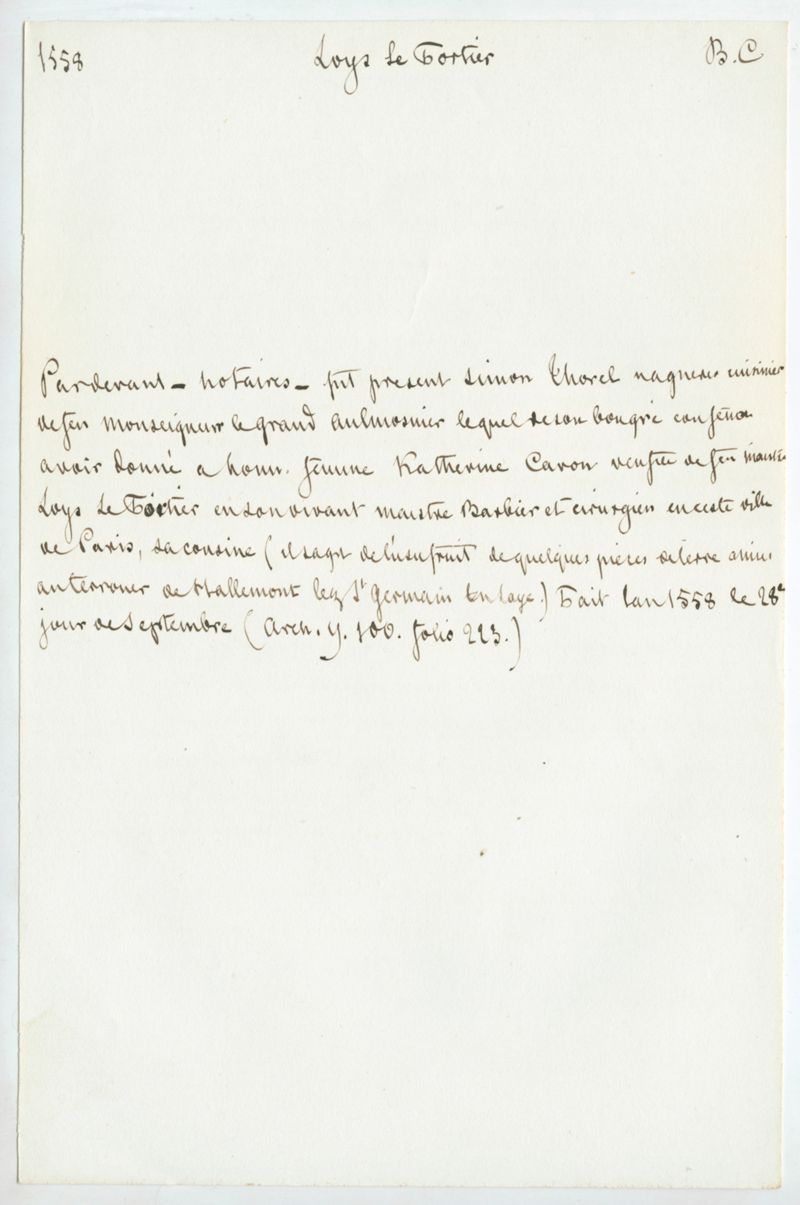 1558 Loys Le Fortier B.C
Pardevant – notaires – fut present Simon Thorel nagueres cuisinier
de feu Monseigneur le grand Aulmosnier lequel de son bon gré confessa
avoir donné a honn. femme Katherine Caron veufve de feu maistre
Loys Le Fortier en son vivant maistre Barbier et cirurgien en ceste ville
de Paris, sa cousine (il sagit de l'usufruit de quelques pieces de terre assises
au terrouer de Hallemont lez St Germain En laye.) Fait lan 1558 le 28e
jour de Septembre (Arch. Y. 100. folio 223.)